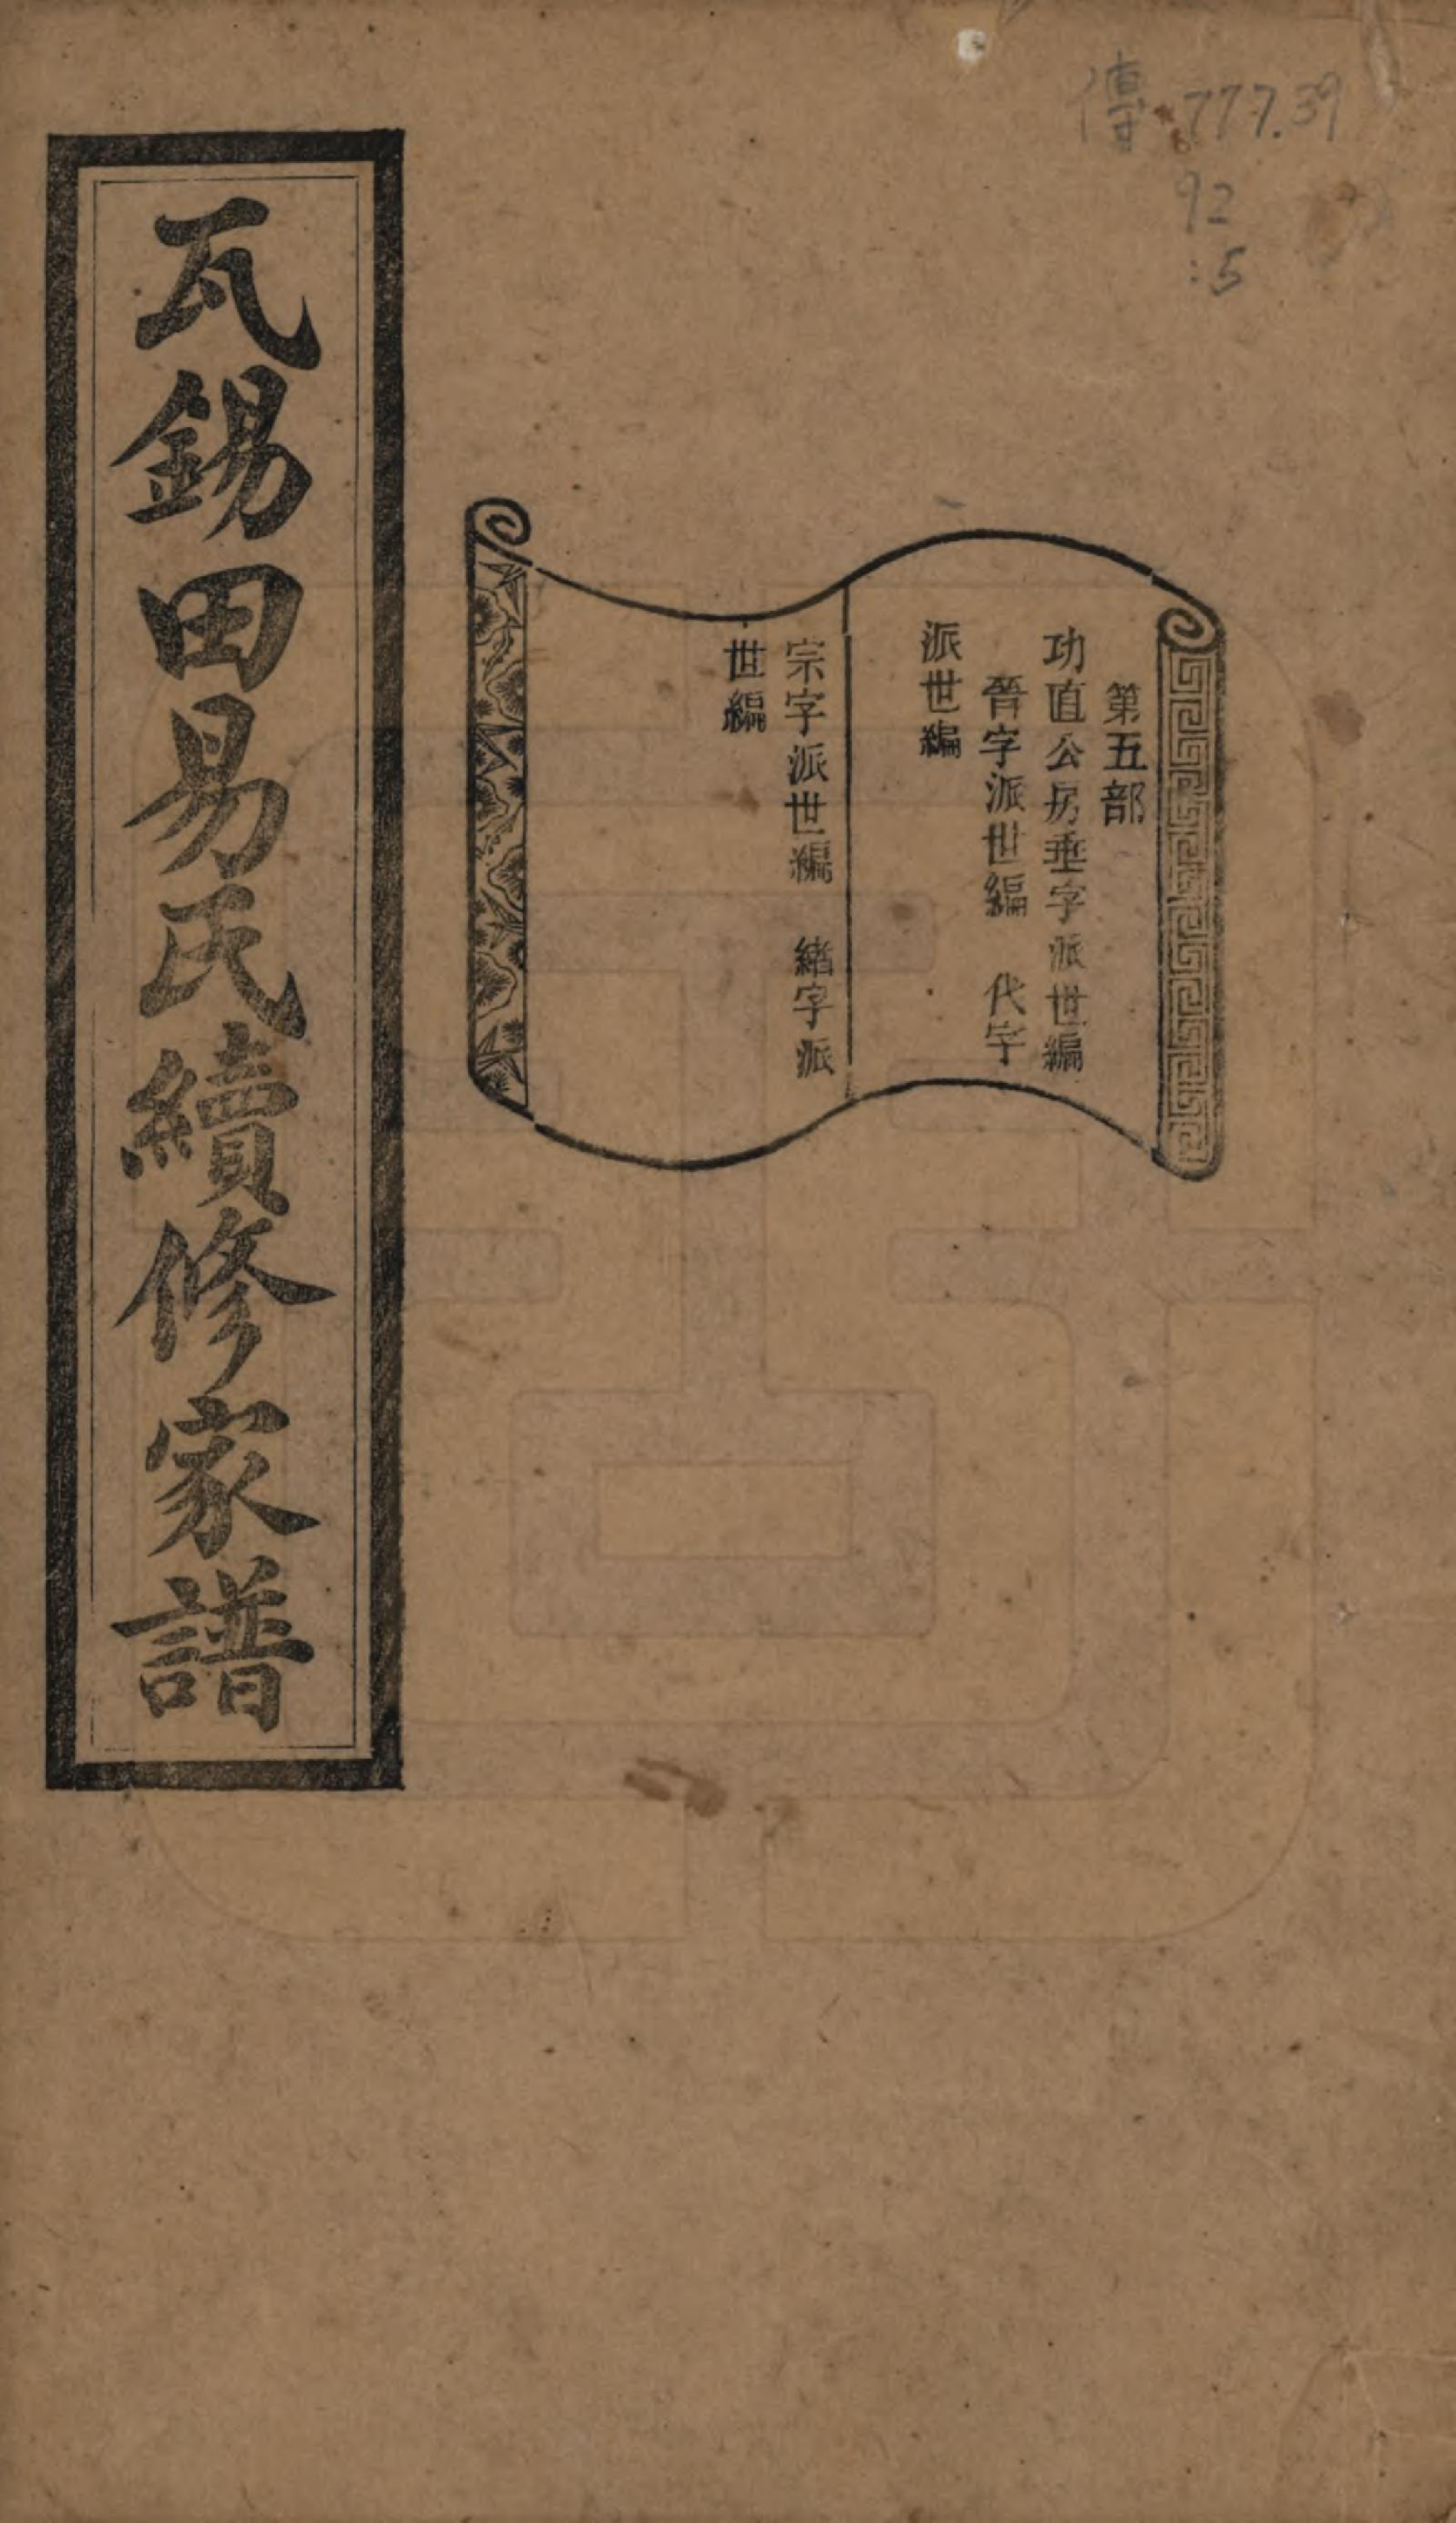 傳 777.39
92
:5
第五部
功直公房垂字派世編
晉字派世編　代字
派世編
宗字派世編　緒字派
世編
瓦錫田易氏續修家譜